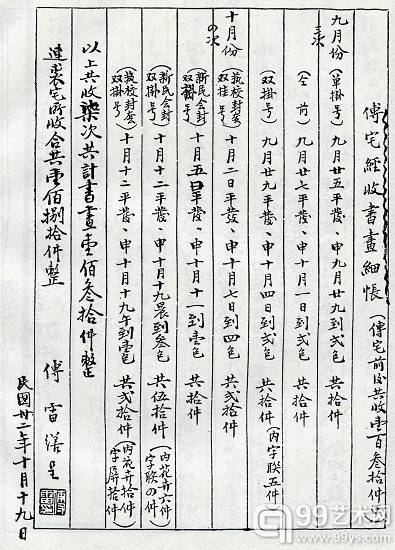 傅宅經收書畫細帳(傅宅前后共收壹百叁拾件正)
九月份 三次
(單掛号)九月廿五平發、申九月廿九到弍色 共弍拾件
(仝前)九月廿七平發、申十月一日到弍色 共弍拾件
(双掛号)九月廿九平發、申十月四日到弍色 共弍拾件(內字联五件)
十月份 の次
(藝校封套 双掛号)十月二日平發、申十月七日到四色 共弍拾件
(新民会封 双掛号)十月五日平發、申十月十一到壹色 共拾件
(新民会封 双掛号)十月十二平發、申十月十九晨到叁色 共伍拾件(內花卉六件 字联の件)
(藝校封套 双掛号)十月十二平發、申十月十九午到壹色 共弍拾件(內花卉拾件 字屏拾件)
以上共收柒次共計書畫壹佰叁拾件整
連裘宅所收合共壹佰捌拾件整
傅雷謄呈
民國卅二年十月十九日
99艺术网
www.99ys.com